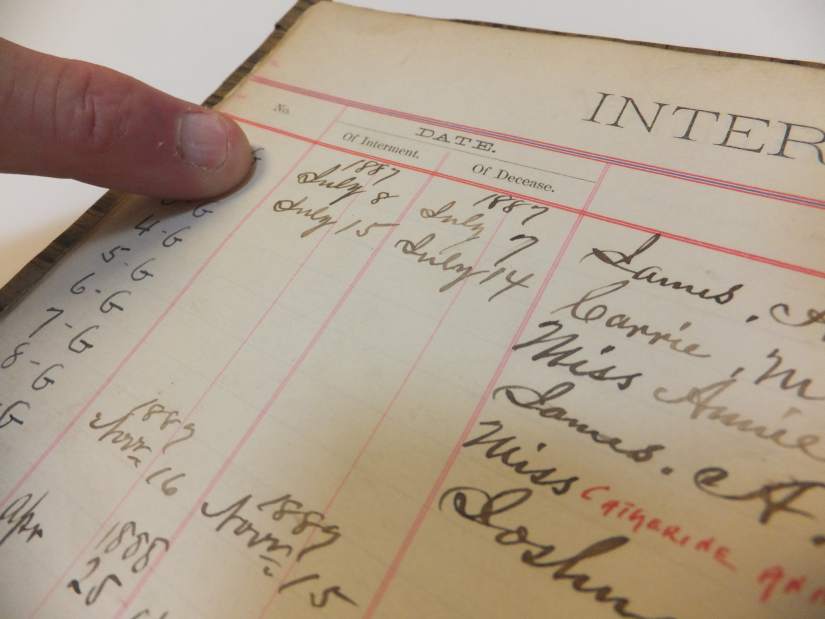 INTER
No. DATE.
Of Interment. Of Decease.
1887 1887
July 8 July 7 James. A
July 15 July 14 Carrie. M
4-G Miss Annie
5-G James. A.
6-G Miss CATHARINE ANN
7-G Joshu
8-G
G
1889
Nov. 16
1889
Nov. 15
Apr 1888
25